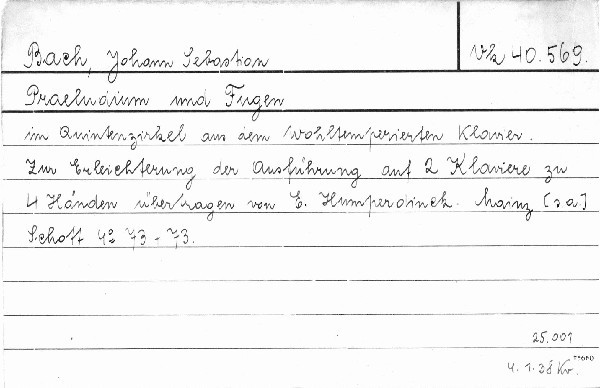 Bach, Johann Sebastian
Vk 40.569.
Praeludium und Fugen
im Quintenzirkel aus dem Wohltemperierten Klavier.
Zur Erleichterung der Ausführung auf 2 Klaviere zu
4 Händen übertragen von E. Humperdinck. Mainz [s.a.]
Schott 4° 73 - 73.
25.001
4. 1. 38 Kv.